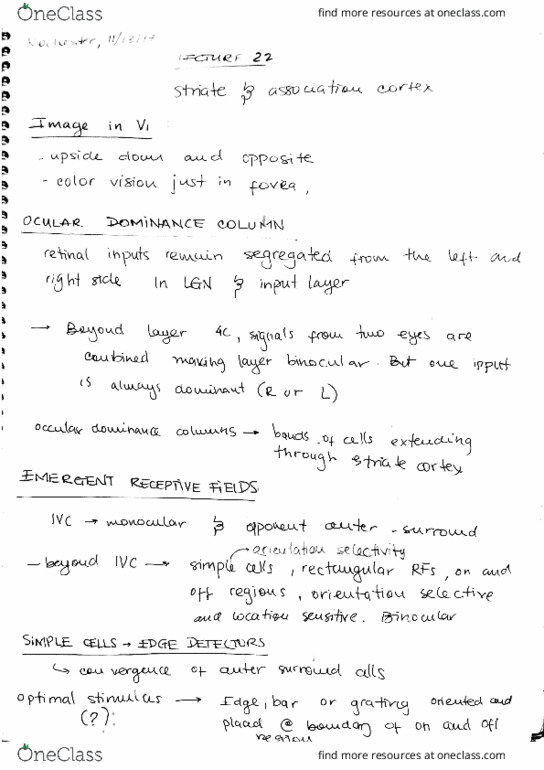 OneClass find more resources at oneclass.com
11/13/
LECTURE 22
Striate & association cortex
Image in V1
- upside down and opposite
- color vision just in fovea,
OCULAR DOMINANCE COLUMN
retinal inputs remain segregated from the left and
right side in LGN & input layer
→ Beyond layer 4C, signals from two eyes are
combined making layer binocular. But one input
is always dominant (R or L)
occular dominance columns → bands of cells extending
through striate cortex
EMERGENT RECEPTIVE FIELDS
IVC → monocular & opponent center - surround
orientation selectivity
- beyond IVC → simple cells, rectangular RFs, on and
off regions, orientation selective
and location sensitive. Binocular
SIMPLE CELLS → EDGE DETECTORS
↳ convergence of center surround cells
optimal stimulus → Edge, bar or grating oriented and
(?): placed @ boundary of on and off
regions
OneClass find more resources at oneclass.com